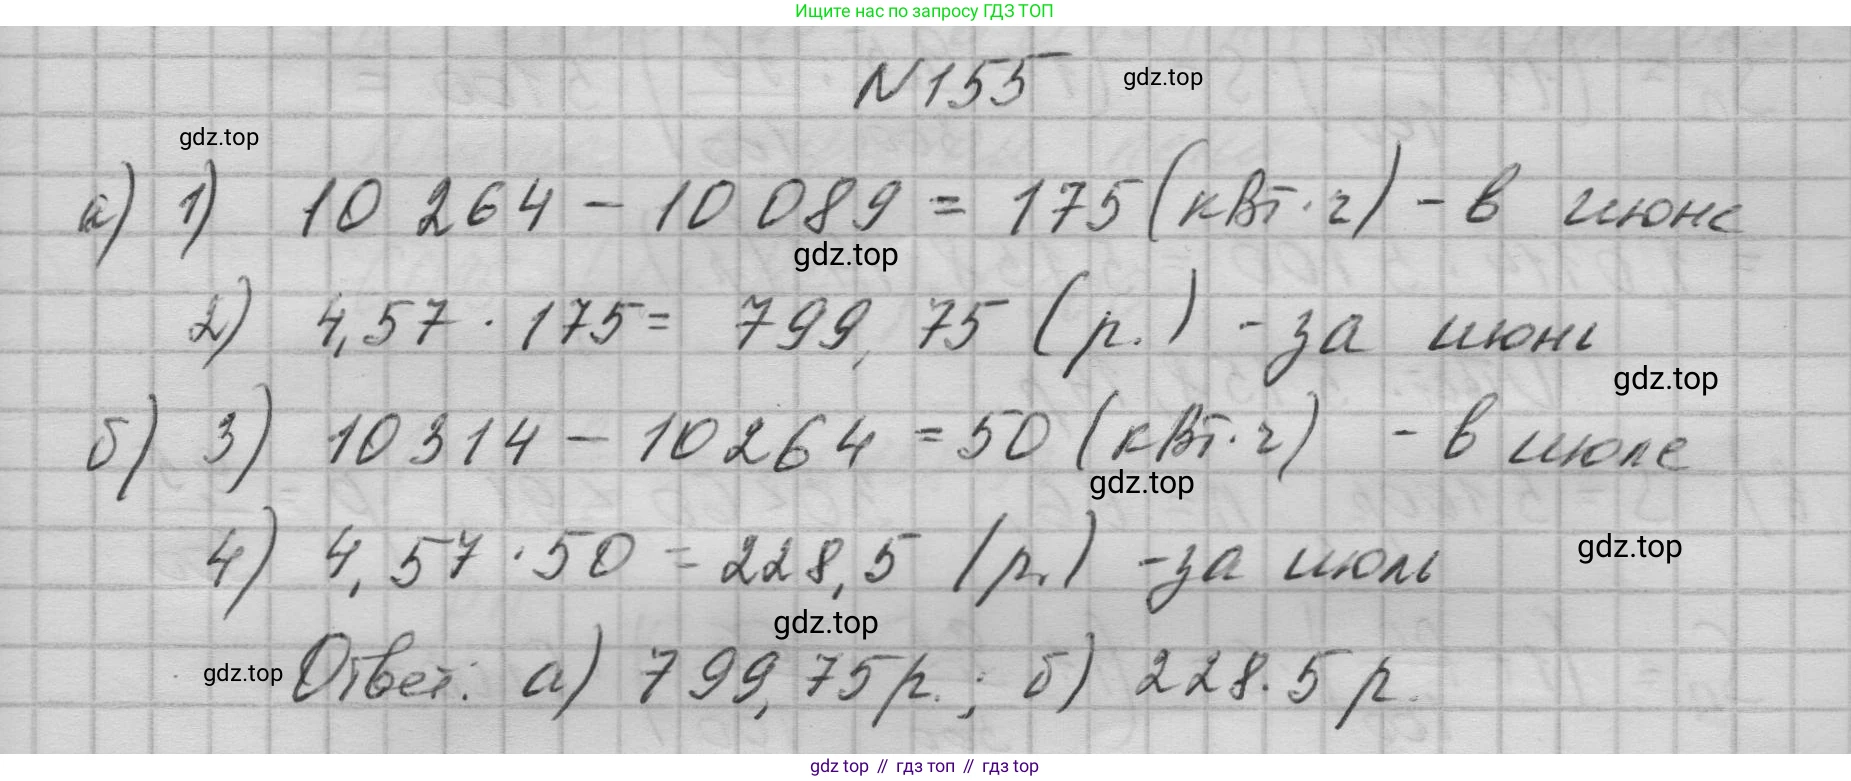 Ищите нас по запросу ГДЗ ТОП
N155 gdz.top
gdz.top
а) 1) 10 264 - 10 089 = 175 (кВт·ч) - в июне
gdz.top
2) 4,57 · 175 = 799,75 (р.) - за июнь
gdz.top
б) 3) 10314 - 10264 = 50 (кВт·ч) - в июле
gdz.top
4) 4,57 · 50 = 228,5 (р.) - за июль
gdz.top
gdz.top
gdz.top Ответ: а) 799,75 р.; б) 228.5 р.
gdz top // гдз топ // гдз top